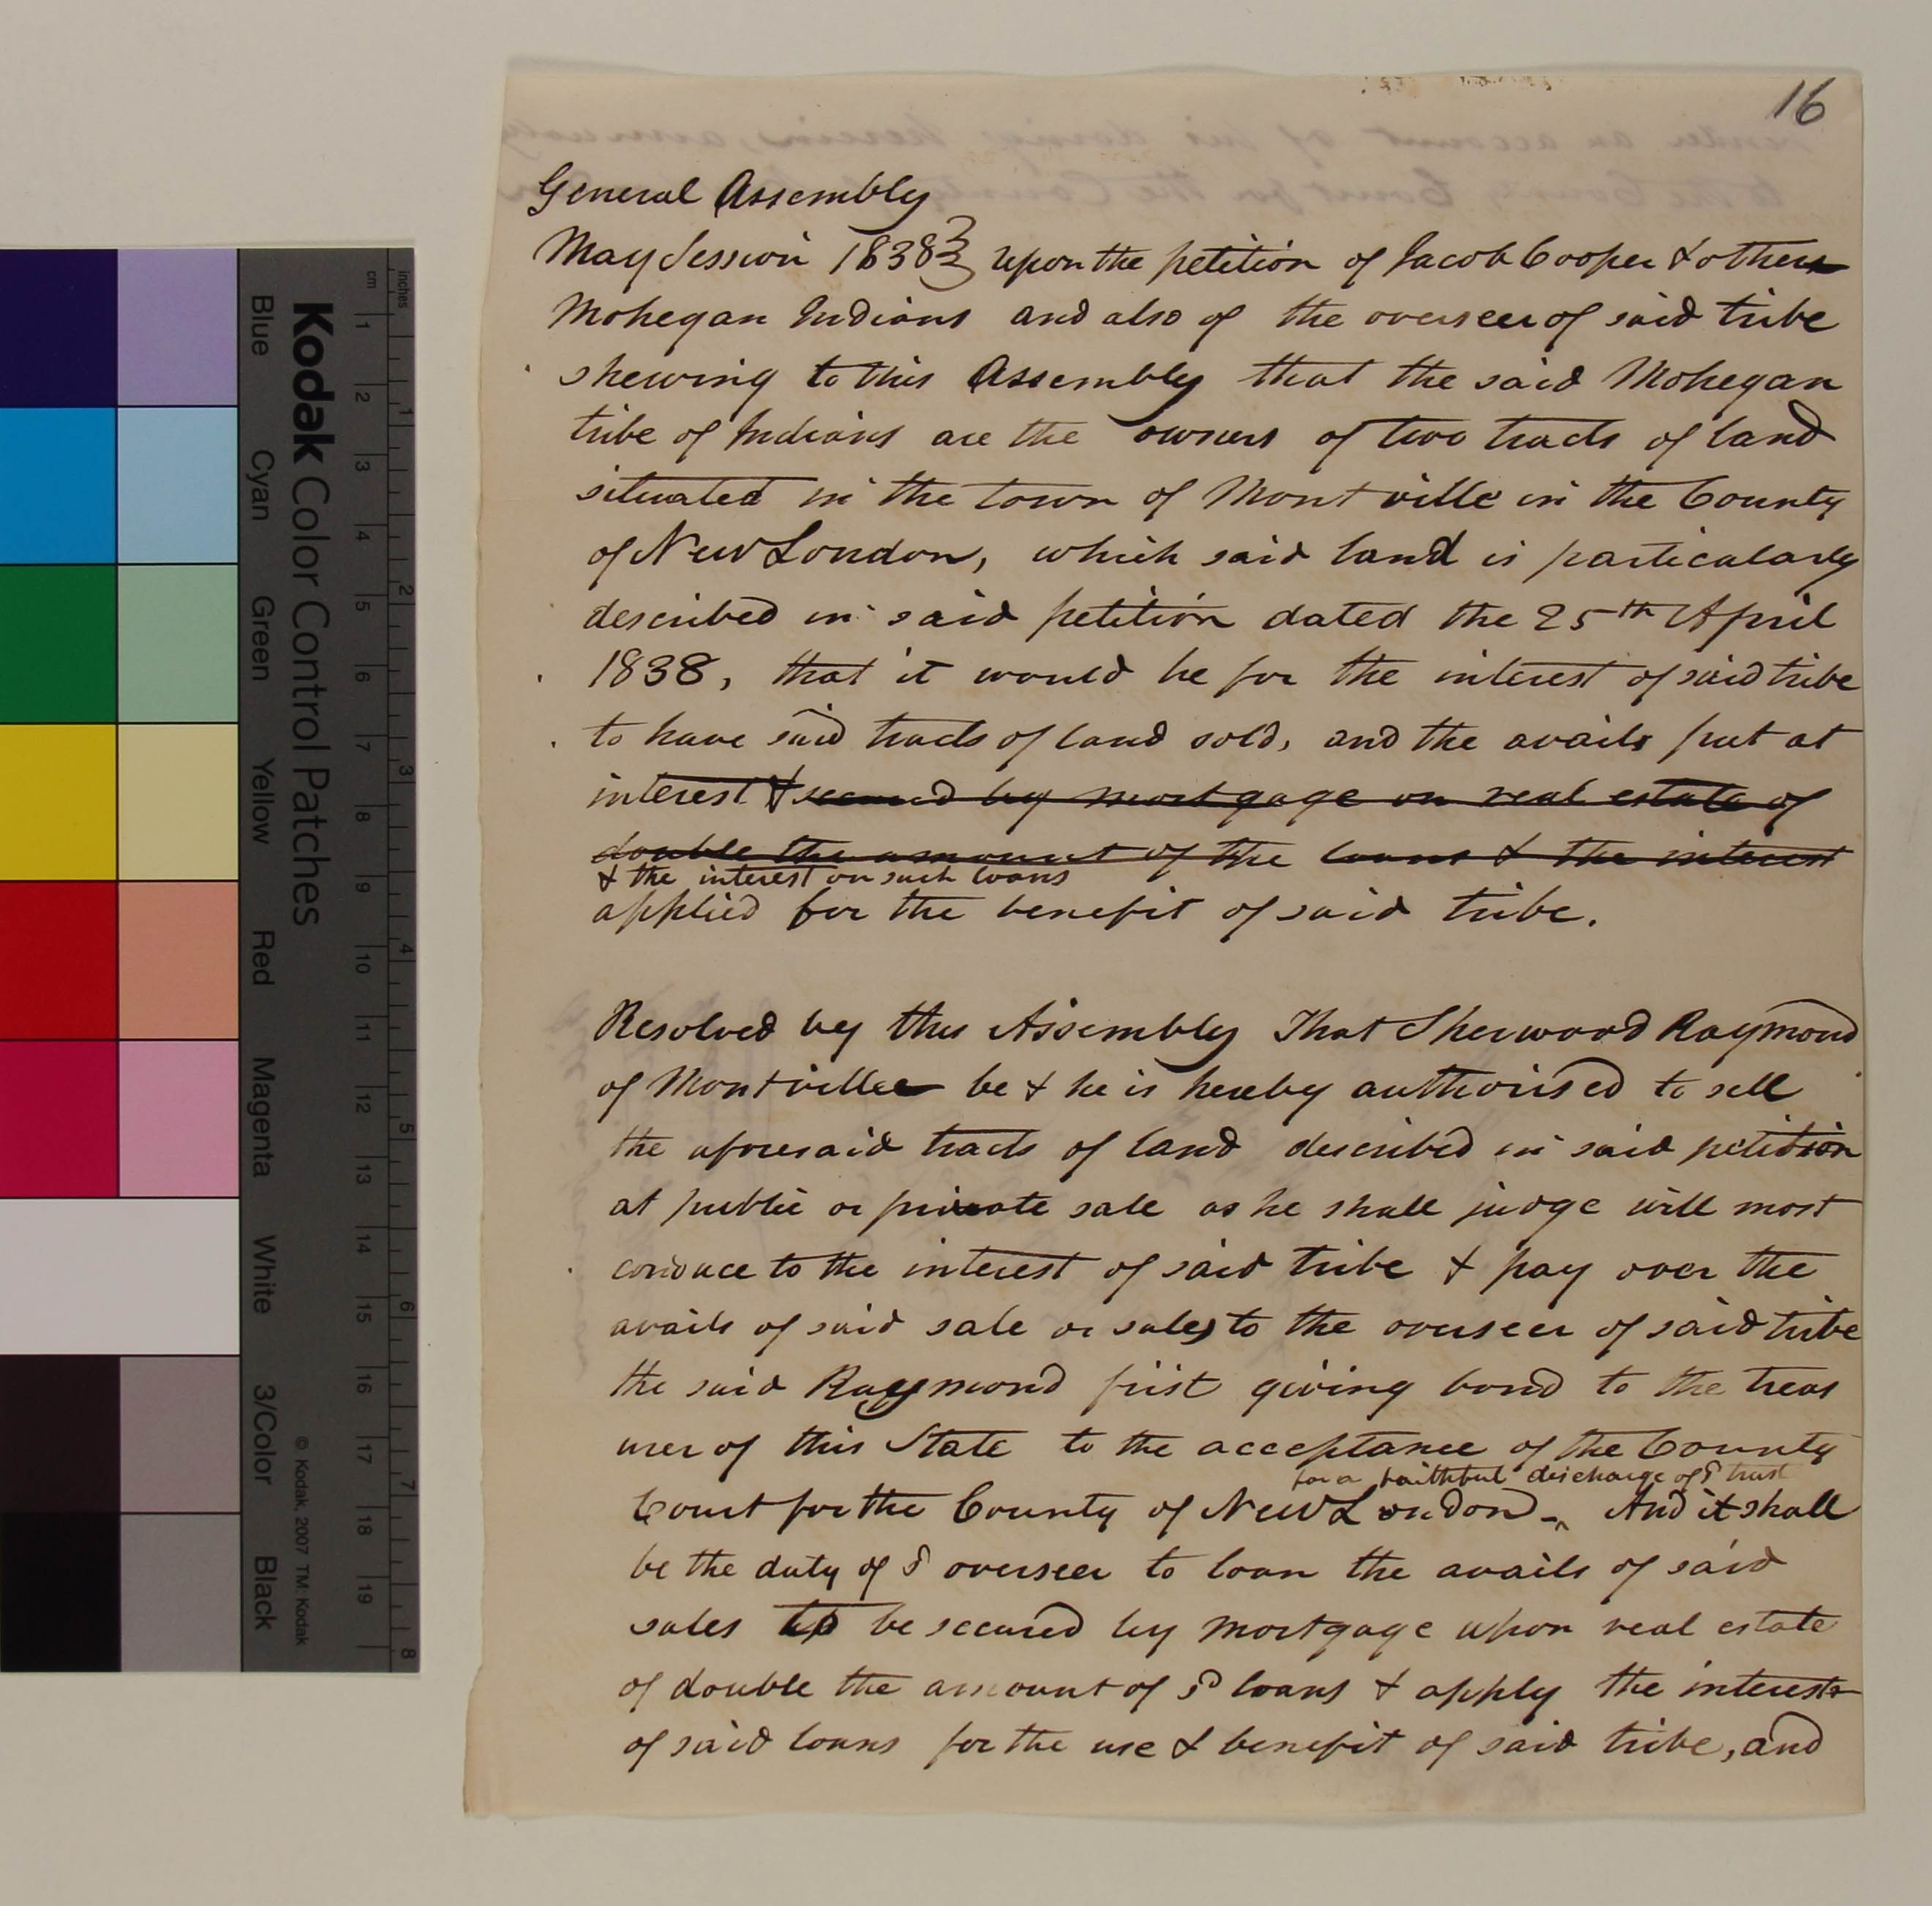 16
General Assembly
May Session 1838} Upon the petition of Jacob Cooper & others
Mohegan Indians and also of the overseer of said tribe
shewing to this Assembly that the said Mohegan
tribe of Indians are the owners of two tracts of land
situated in the town of Montville in the County
of New London, which said land is particularly
described in said petition dated the 25th April
1838, that it would be for the interest of said tribe
to have said tracts of land sold, and the avails put at
interest & secured by mortgage on real estate of
double the amount of the loans & the interest
& the interest on such loans
applied for the benefit of said tribe.
Resolved by this Assembly That Sherwood Raymond
of Montville be & he is hereby authorised to sell
the aforesaid tracts of land described in said petition
at public or private sale as he shall judge will most
conduce to the interest of said tribe & pay over the
avails of said sale or sales to the overseer of said tribe
the said Raymond first giving bond to the treas
urer of this State to the acceptance of the County
for a faithful discharge of sd trust
Court for the County of New London - ^ And it shall
be the duty of sd overseer to loan the avails of said
sales to be secured by mortgage upon real estate
of double the amount of sd loans & apply the interest
of said loans for the use & benefit of said tribe, and
Kodak Color Control Patches
Blue Cyan Green Yellow Red Magenta White 3/Color Black
© Kodak, 2007 TM: Kodak
inches 1 2 3 4 5 6 7 8
cm 1 2 3 4 5 6 7 8 9 10 11 12 13 14 15 16 17 18 19